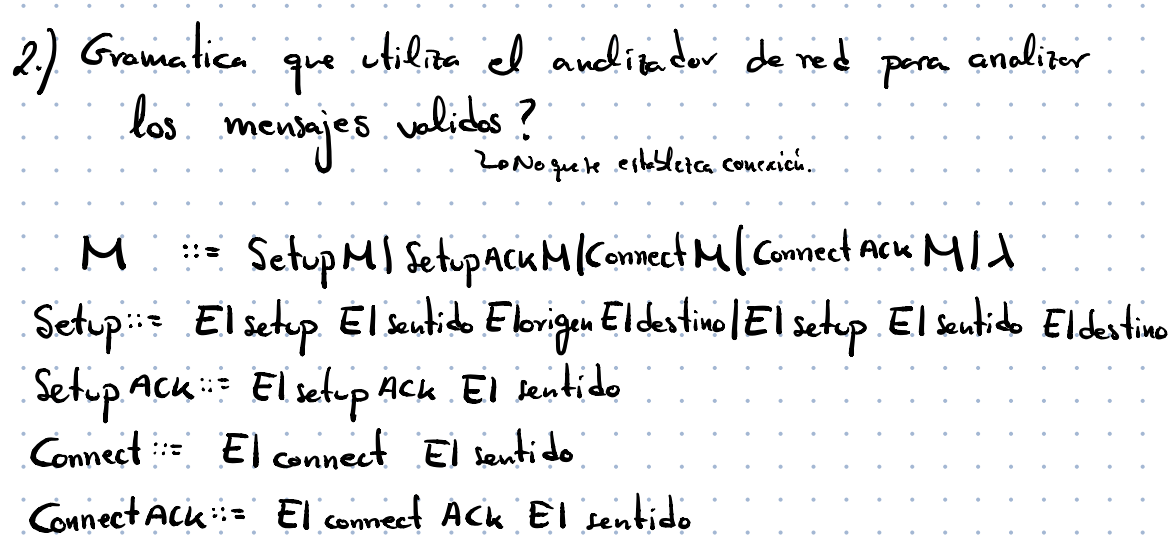 2.) Gramatica que utiliza el analizador de red para analizar
los mensajes validos?
↳No que se establezca conexión.
M ::= SetupM|SetupACKM|ConnectM|ConnectACKM|λ
Setup::= EIsetup EIsentido EIorigen EIdestino|EIsetup EIsentido EIdestino
SetupACK::= EIsetupACK EIsentido
Connect::= EIconnect EIsentido
ConnectACK::= EIconnectACK EIsentido